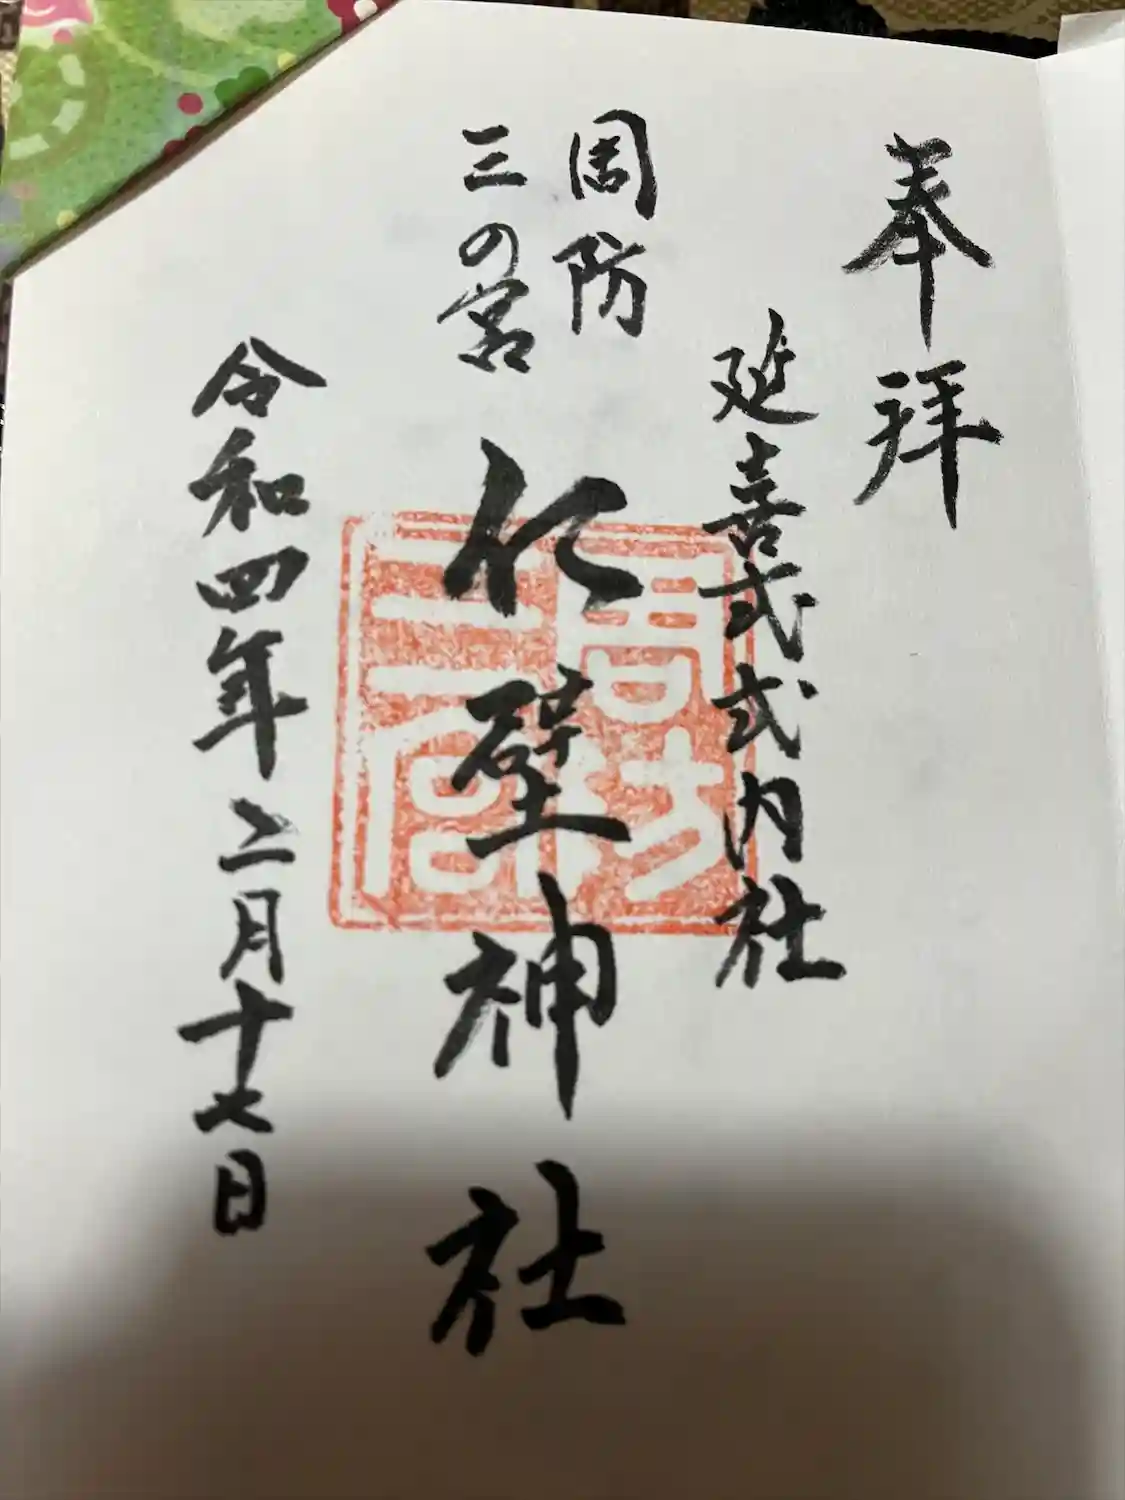 奉拝
延喜式式内社
周防
三の宮
仁壁神社
令和四年二月十七日
周防三宮